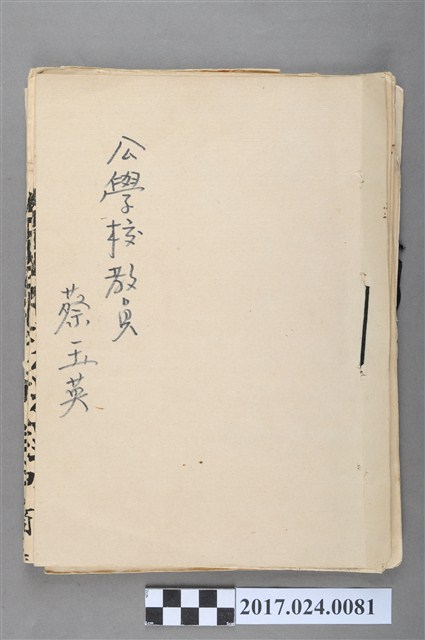 公學校教員
蔡玉英
2017.024.0081